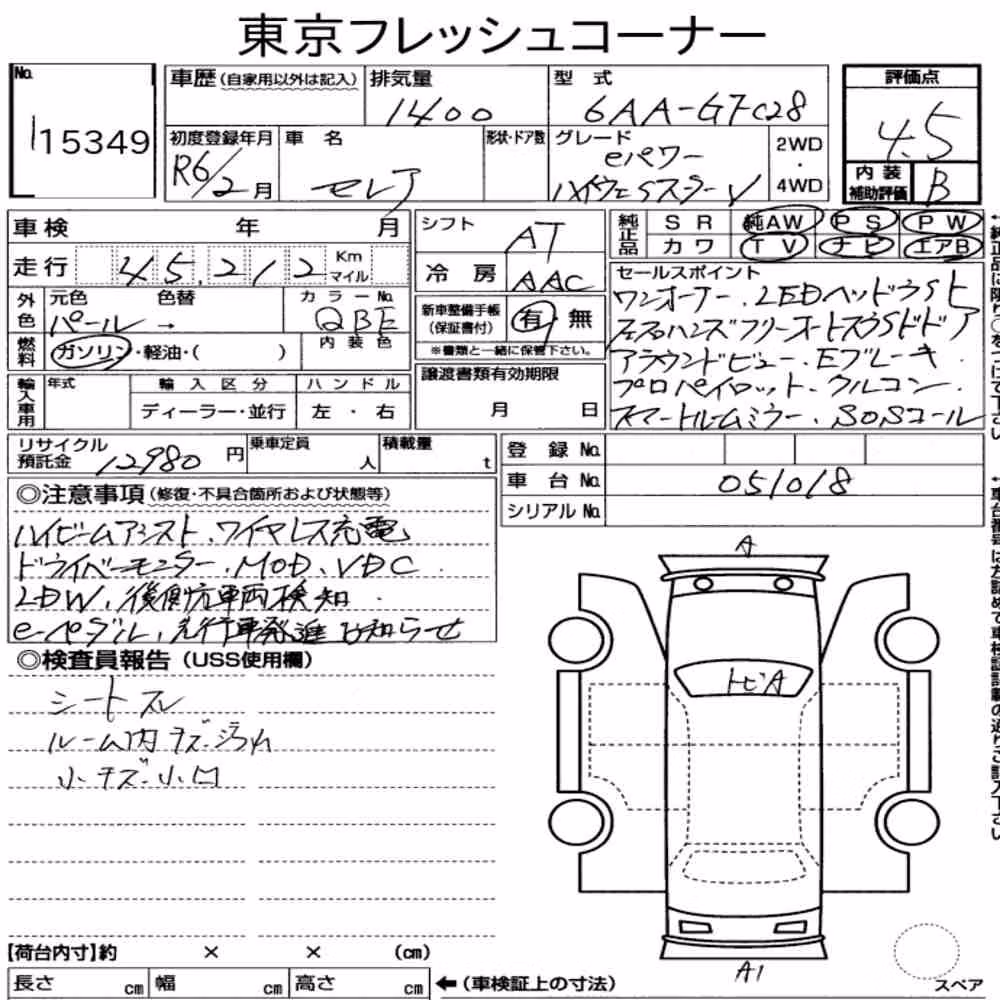 東京フレッシュコーナー
No.
15349
車歴(自家用以外は記入)
排気量
1400
型式
6AA-GFC28
評価点
4.5
初度登録年月
R6/2月
車名
セレナ
形状・ドア数
グレード
eパワー
ハイウェイスターV
2WD
・
4WD
内装補助評価
B
車検 年 月
シフト
AT
純正品
SR 純AW PS PW
カワ TV ナビ エアB
走行 45,212 Km マイル
冷房 AAC
外色
元色 色替 カラーNo.
パール → QBE
新車整備手帳(保証書付) 有・無
※書類と一緒に保管下さい。
燃料
ガソリン・軽油・( )
内装色
輸入車用
年式
輸入区分
ハンドル
ディーラー・並行
左・右
譲渡書類有効期限
月 日
セールスポイント
ワンオーナー、LEDヘッドライト
左右ハンズフリーオートスライドドア
アラウンドビュー、Eブレーキ
プロパイロット、クルコン、
スマートルームミラー、SOSコール
リサイクル預託金 12980円
乗車定員 人
積載量 t
登録No.
車台No. 051018
シリアルNo.
◎注意事項(修復・不具合箇所および状態等)
ハイビームアシスト、ワイヤレス充電
ドライバーモニター、MOD、VDC
LDW、後側方車両検知
e-ペダル、先行車発進お知らせ
◎検査員報告(USS使用欄)
シートスレ
ルーム内キズ・汚れ
小キズ・小凹
A
トビA
A1
スペア
【荷台内寸】約 × × (cm)
長さ cm 幅 cm 高さ cm ←(車検証上の寸法)